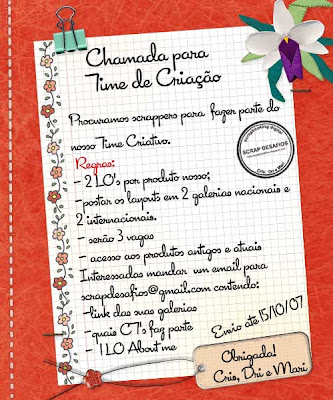 Chamada para
Time de Criação
Procuramos scrappers para fazer parte do
nosso Time Criativo.
Regras:
- 2 LO's por produto nosso;
-postar os layouts em 2 galerias nacionais e
2 internacionais.
- serão 3 vagas
- acesso aos produtos antigos e atuais
Interessadas mandar um email para
scrapdesafios@gmail.com contendo:
-link das suas galerias
-quais CT's faz parte
- 1 LO About me
Envio até 15/10/07
SCRAP DESAFIOS
Obrigada!
Cris, Dri e Mari